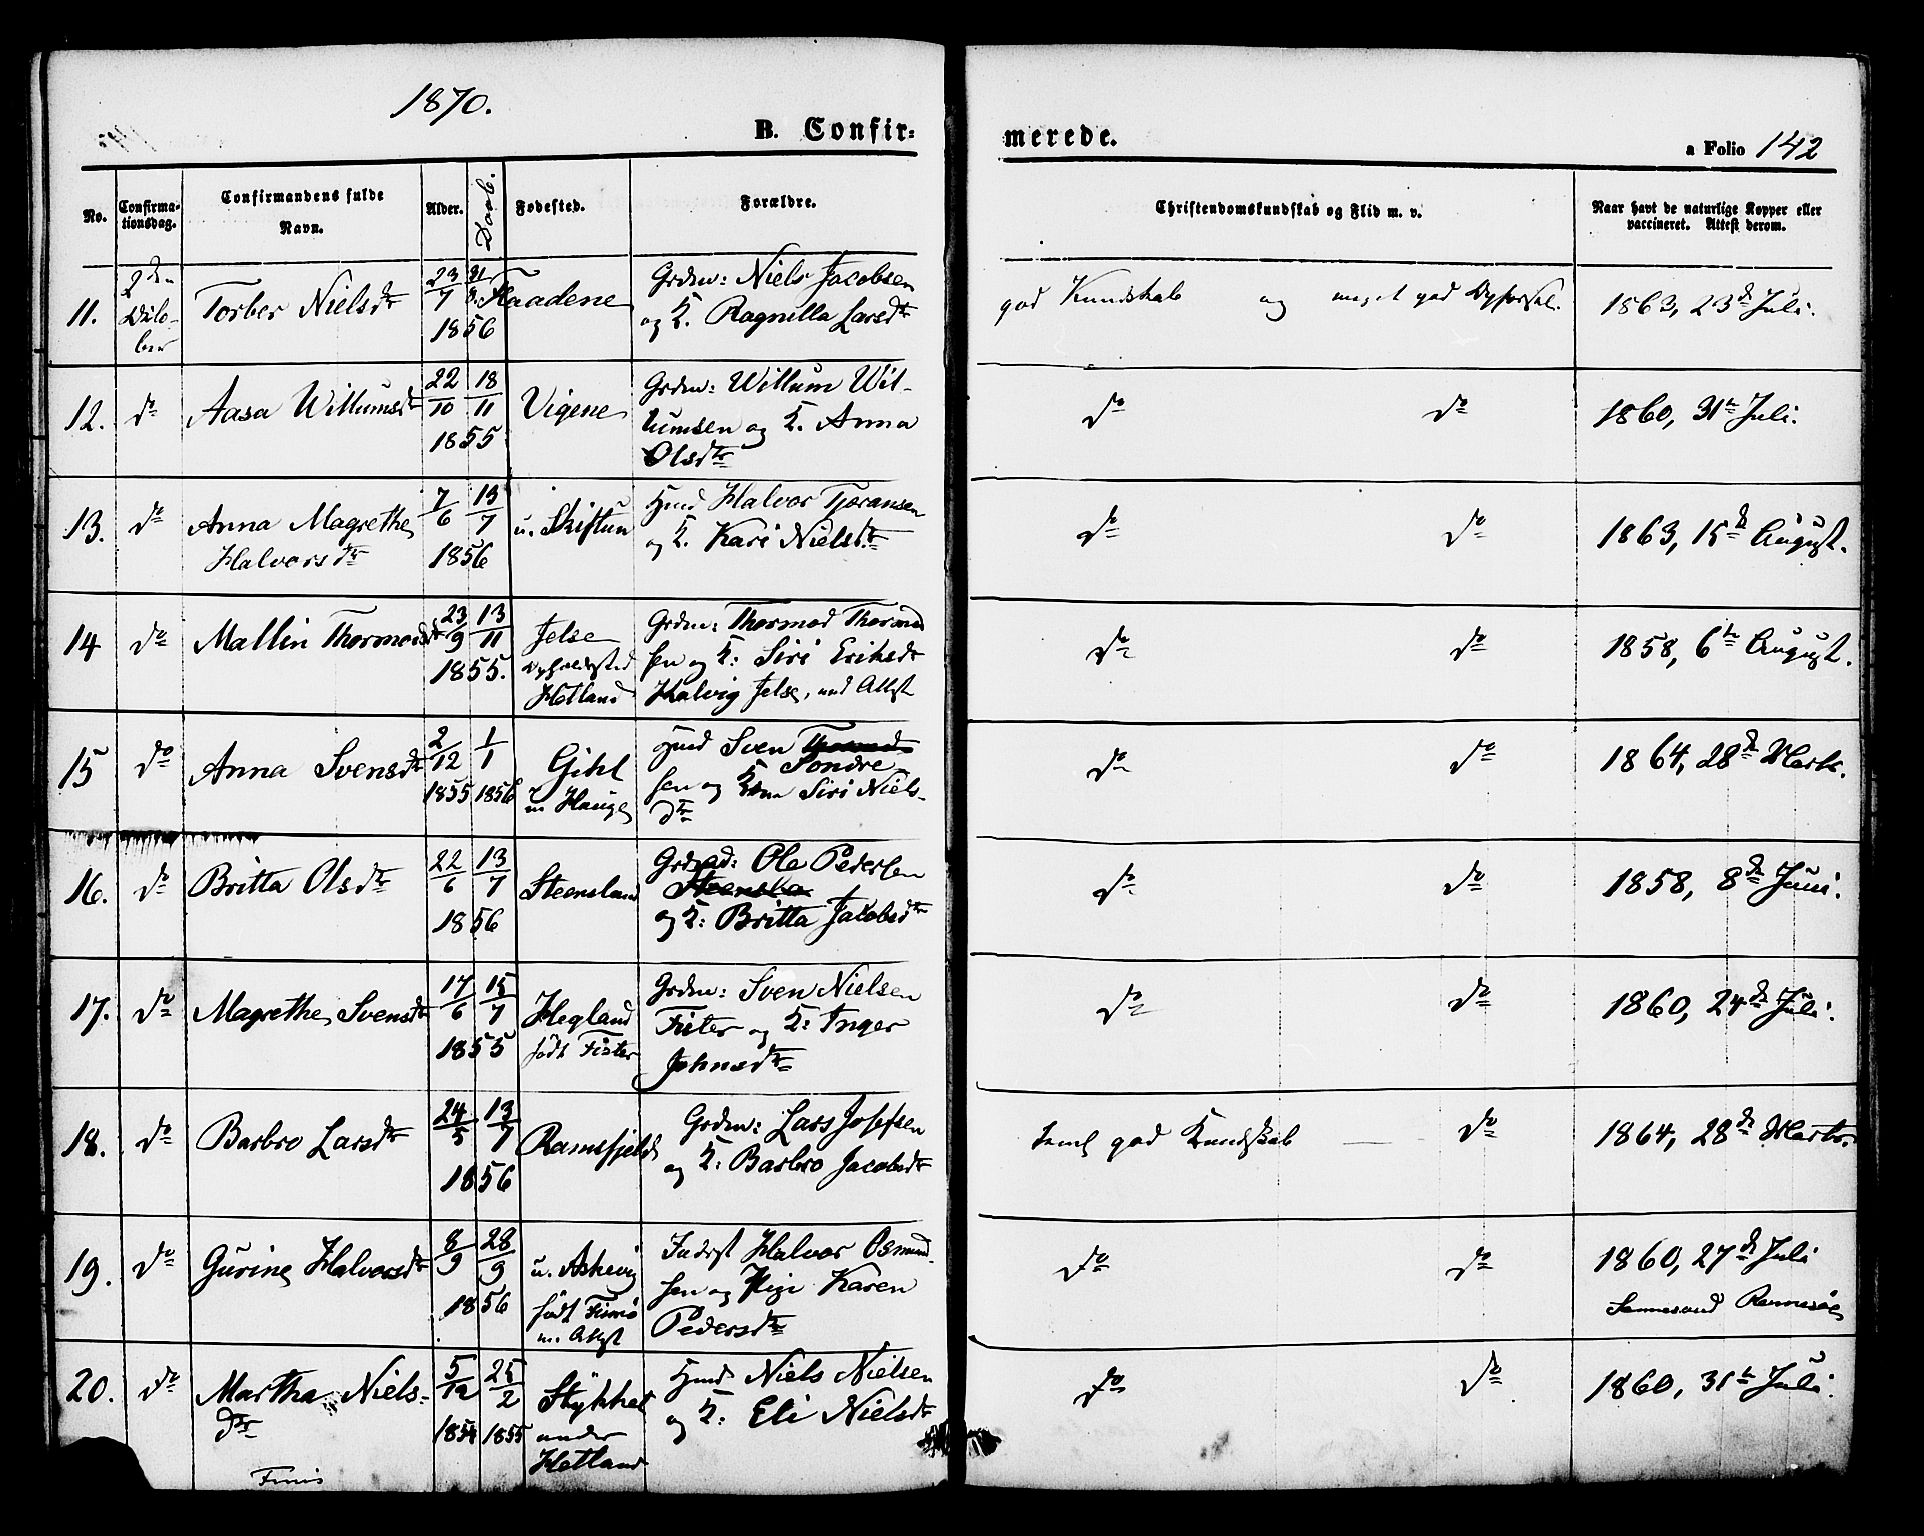 1870.
B. Confir=
merede.
a Folio 142
No.
Confirma-
tionsdag.
Confirmandens fulde
Navn.
Alder.
Daab.
Fødested.
Forældre.
Christendomskundskab og Flid m. v.
Naar havt de naturlige Kopper eller
vaccineret. Attest derom.
11.
2den
Octo-
ber
Torber Nielsdtr
23/7
1856
Faadene
Grdm: Niels Jacobsen
og K. Ragnilla Larsdtr
god Kundskab og meget god Opførsel.
1863, 23de Juli.
12. do Aasa Willumsdtr
22/10 18/11
1855
Vigene
Grdm: Willum Wil-
lumsen og K. Anna
Olsdtr
do do
1860, 31te Juli.
13. do Anna Magrethe
Halvorsdtr
7/6 13/7
1856
u. Skiftun
Hmd Halvor Tjøransen
og K. Kari Nielsdtr
do do
1863, 15de August.
14 do Mallin Thormodsdtr
23/9 13/11
1855.
Jelse
Opholdsted
Hetland
Grdm: Thormod Thormod
sen og K: Siri Eriksdtr
Halvig Jelse, med Attest
do do
1858, 6te August.
15 do Anna Svensdtr
2/12 1/1
1855 1856
Gikl
m Hauge
Hmd Sven Thormod
Tondre
sen og Kone Siri Niels-
dtr
do do
1864, 28de Marts.
16. do Britta Olsdtr
22/6 13/7
1856
Steensland
Grdmd: Ole Pedersen
og K: Britta Jakobsdtr
do do
1858, 8de Juni.
17. do Magrethe Svensdtr
17/6 15/7
1855
Hegland
født Fister
Grdm: Sven Nielsen
Fister og K: Inger
Johnsdtr
do do
1860, 24de Juli.
18. do Barbro Larsdtr
24/5 13/7
1856
Ramsfjeld
Grdm: Lars Josefsen
og K: Barbro Jacobsdtr
temt god Kundskab — do
1864, 28de Marts.
19. do Gurine Halvorsdtr
8/9 28/9
1856
u. Askevig
født Finnø
m. Attest
Inderst Halvor Osmund-
sen og Pige Karen
Pedersdtr
do do
1860, 27de Juli
Rennesøe
20. do Martha Niels-
dtr
5/12 25/2
1854 1855
Stykket
under
Hetland
Hmd Niels Nielsen
og K: Eli Nielsdtr
do do
1860, 31te Juli.
Finis